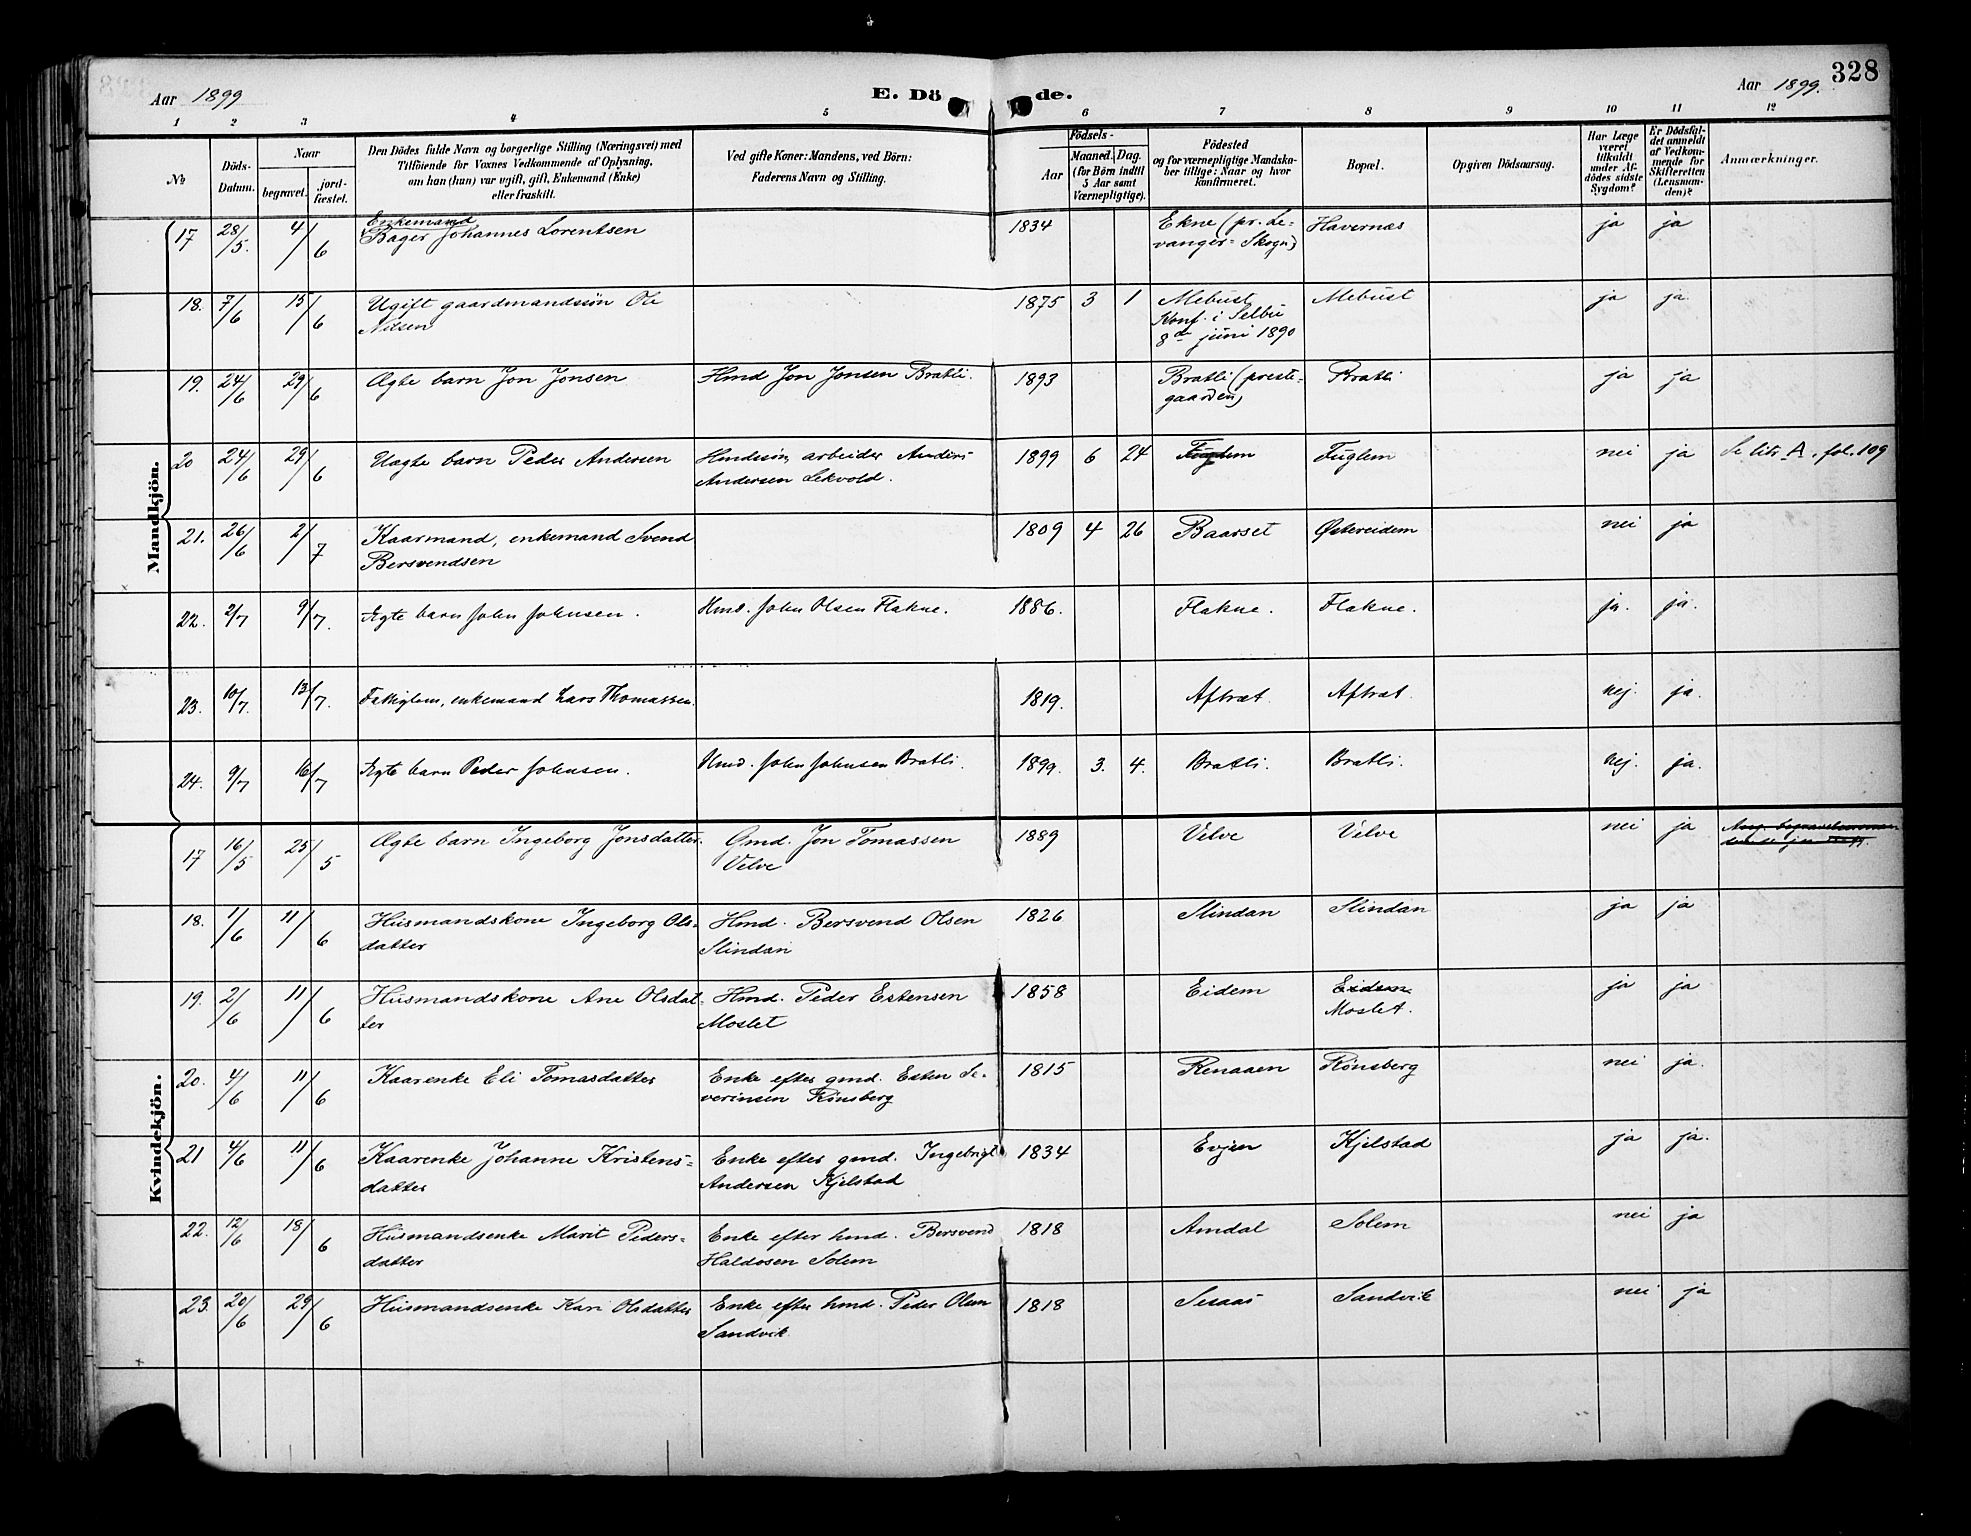 328
Aar 1899 E. Dö de. Aar 1899.
1 2 3 4 5 6 7 8 9 10 11 12
№ Döds-Datum. Naar begravet. jord-fæstet. Den Dödes fulde Navn og borgerlige Stilling (Næringsvei) med Tilföiende for Voxnes Vedkommende af Oplysning, om han (hun) var ugift, gift, Enkemand (Enke) eller fraskilt. Ved gifte Koner: Mandens, ved Börn: Faderens Navn og Stilling. Födsels- Aar Maaned. Dag. (for Börn indtil 5 Aar samt Værnepligtige). Födested og for værnepligtige Mandska-ber tillige: Naar og hvor konfirmeret. Bopæl. Opgiven Dödsaarsag. Har Læge været tilkaldt under Af-dödes sidste Sygdom? Er Dödsfal-det anmeldt af Vedkom-mende for Skifteretten (Lensman-den)? Anmærkninger.
Mandkjön.
Enkemand
17 28/5. 4/6 Bager Johannes Lorentsen 1834 Ekne (pr. Le- Havernæs ja ja
vanger-Skogn)
18. 7/6 15/6 Ugift gaardmandssön Ole 1875 3 1 Mebust Mebust ja ja.
Nilsen Konf. i Selbu
8de juni 1890
19. 24/6 29/6 Ægte barn Jon Jonsen Hmd Jon Jonsen Bratli. 1893 Bratli (preste- Bratli ja ja
gaarden)
20 24/6 29/6 Uægte barn Peder Andersen Hmdssön, arbeider Anders 1899 6 24 Fuglem Fuglem nei ja Se litr A. fol. 109
Andersen Lekvold.
21. 26/6 2/7 Kaarmand, enkemand Svend 1809 4 26 Baarset Østereidem nei ja
Bersvendsen
22. 2/7 9/7. Ægte barn John Johnsen. Hmd. John Olsen Flakne. 1886. Flakne. Flakne. ja. ja.
23. 10/7. 13/7. Fattiglem, enkemand Lars Thomassen. 1819. Aftret. Aftret. nej. ja.
24. 9/7 16/7 Ægte barn Peder Johnsen. Hmd. John Johnsen Bratli. 1899. 3. 4. Bratli. Bratli. nej. ja.
Kvindekjön.
17 16/5 25/5 Ægte barn Ingeborg Jonsdatter. Gmd. Jon Tomassen 1889 Velve Velve nei ja
Velve
18. 1/6 11/6 Husmandskone Ingeborg Ols- Hmd. Bersvend Olsen 1826 Slindan Slindan ja ja
datter Slindan
19. 2/6 11/6 Husmandskone Ane Olsdat- Hmd. Peder Estensen 1858 Eidem Eidem ja ja
ter Moslet Moslet.
20. 4/6 11/6 Kaarenke Eli Tomasdatter Enke efter gmd. Esten Se- 1815 Renaaen Rönsberg nei ja.
verinsen Rönsberg
21 4/6 11/6 Kaarenke Johanne Kristens- Enke efter gmd. Ingebrigt 1834 Evjen Kjelstad ja ja.
datter Andersen Kjelstad
22. 12/6 18/6 Husmandsenke Marit Peders- Enke efter hmd. Bersvend 1818 Amdal Solem nei ja
datter Haldosen Solem
23. 20/6 29/6 Husmandsenke Kari Olsdatter Enke efter hmd. Peder Olsen 1818 Sesaas Sandvik nei ja
Sandvik